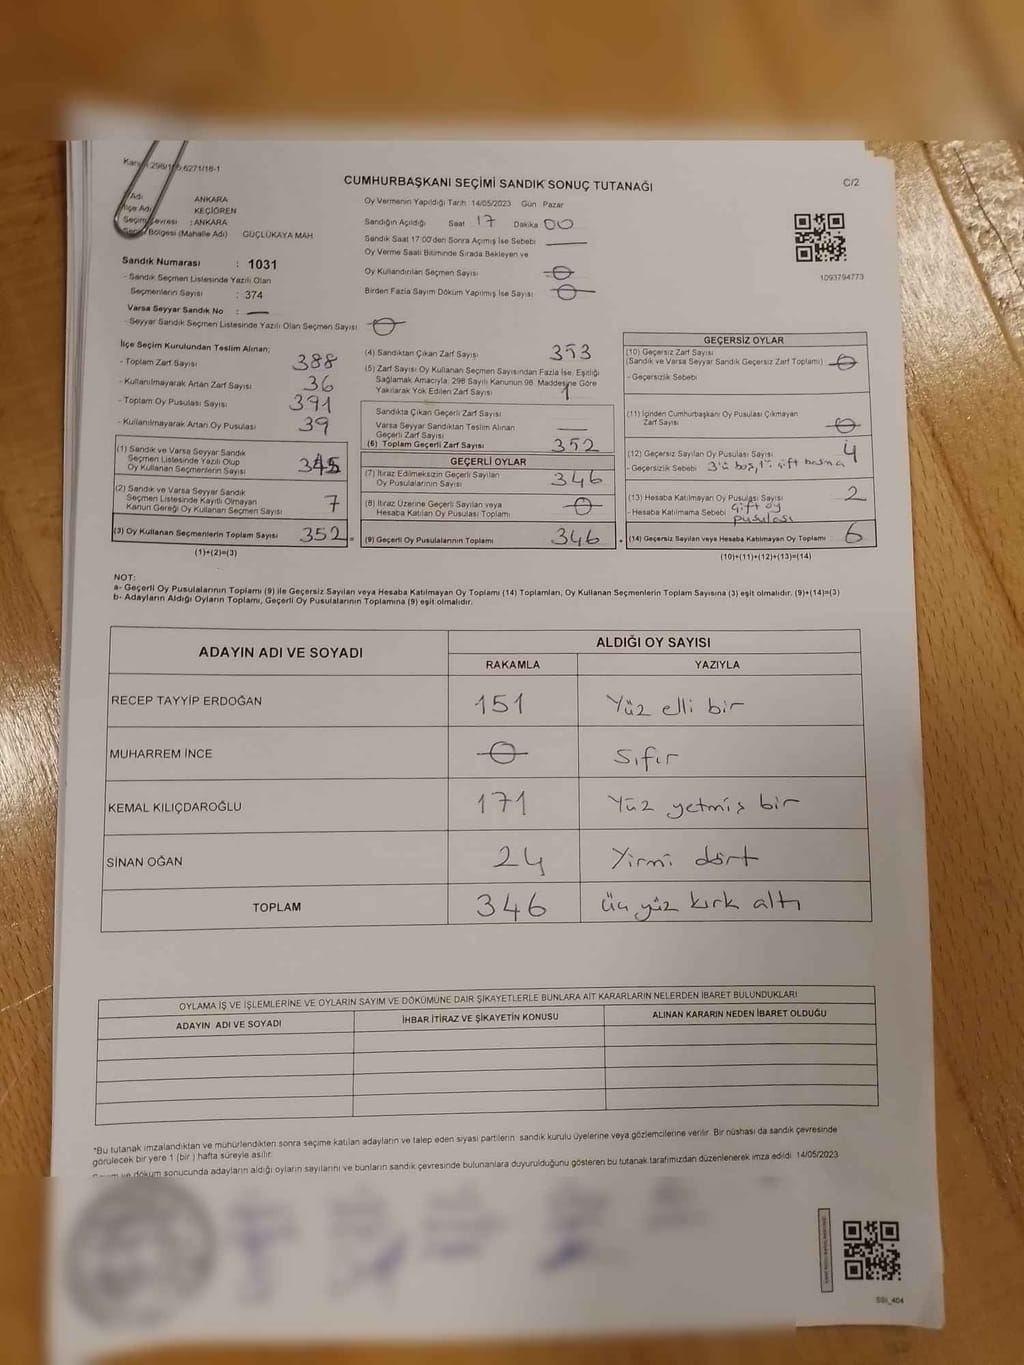 CUMHURBAŞKANI SEÇİMİ SANDIK SONUÇ TUTANAĞI
C/2
Adı: ANKARA
İlçe Adı KEÇİÖREN
Seçim Çevresi : ANKARA
Seçim Bölgesi (Mahalle Adı) GÜÇLÜKAYA MAH
Sandık Numarası : 1031
- Sandık Seçmen Listesinde Yazılı Olan
Seçmenlerin Sayısı : 374
Varsa Seyyar Sandık No :
- Seyyar Sandık Seçmen Listesinde Yazılı Olan Seçmen Sayısı: 0
Oy Vermenin Yapıldığı Tarih: 14/05/2023 Gün Pazar
Sandığın Açıldığı Saat 17 Dakika 00
Sandık Saat 17:00'den Sonra Açımış İse Sebebi
Oy Verme Saati Bitiminde Sırada Bekleyen ve
Oy Kullandırılan Seçmen Sayısı 0
Birden Fazla Sayım Döküm Yapılmış İse Sayısı 0
1093794773
İlçe Seçim Kurulundan Teslim Alınan;
- Toplam Zarf Sayısı 388
- Kullanılmayarak Artan Zarf Sayısı 36
- Toplam Oy Pusulası Sayısı 391
- Kullanılmayarak Artan Oy Pusulası 39
(1) Sandık ve Varsa Seyyar Sandık
Seçmen Listesinde Yazılı Olup
Oy Kullanan Seçmenlerin Sayısı 345
(2) Sandık ve Varsa Seyyar Sandık
Seçmen Listesinde Kayıtlı Olmayan
Kanun Gereği Oy Kullanan Seçmen Sayısı 7
(3) Oy Kullanan Seçmenlerin Toplam Sayısı 352 =
(1)+(2)=(3)
(4) Sandıktan Çıkan Zarf Sayısı 353
(5) Zarf Sayısı Oy Kullanan Seçmen Sayısından Fazla İse, Eşitliği
Sağlamak Amacıyla; 298 Sayılı Kanunun 98. Maddesine Göre
Yakılarak Yok Edilen Zarf Sayısı 1
Sandıkta Çıkan Geçerli Zarf Sayısı
Varsa Seyyar Sandıktan Teslim Alınan
Geçerli Zarf Sayısı
(6) Toplam Geçerli Zarf Sayısı 352
GEÇERLİ OYLAR
(7) İtiraz Edilmeksizin Geçerli Sayılan
Oy Pusulalarının Sayısı 346
(8) İtiraz Üzerine Geçerli Sayılan veya
Hesaba Katılan Oy Pusulası Toplamı 0
(9) Geçerli Oy Pusulalarının Toplamı 346
GEÇERSİZ OYLAR
(10) Geçersiz Zarf Sayısı
(Sandık ve Varsa Seyyar Sandık Geçersiz Zarf Toplamı) 0
- Geçersizlik Sebebi
(11) İçinden Cumhurbaşkanı Oy Pusulası Çıkmayan
Zarf Sayısı 0
(12) Geçersiz Sayılan Oy Pusulası Sayısı 4
- Geçersizlik Sebebi 3'ü boş, 1'i çift basma
(13) Hesaba Katılmayan Oy Pusulası Sayısı 2
- Hesaba Katılmama Sebebi çift oy
pusulası
(14) Geçersiz Sayılan veya Hesaba Katılmayan Oy Toplamı 6
(10)+(11)+(12)+(13)=(14)
NOT:
a- Geçerli Oy Pusulalarının Toplamı (9) ile Geçersiz Sayılan veya Hesaba Katılmayan Oy Toplamı (14) Toplamları, Oy Kullanan Seçmenlerin Toplam Sayısına (3) eşit olmalıdır. (9)+(14)=(3)
b- Adayların Aldığı Oyların Toplamı, Geçerli Oy Pusulalarının Toplamına (9) eşit olmalıdır.
ADAYIN ADI VE SOYADI
ALDIĞI OY SAYISI
RAKAMLA YAZIYLA
RECEP TAYYİP ERDOĞAN 151 Yüz elli bir
MUHARREM İNCE 0 Sıfır
KEMAL KILIÇDAROĞLU 171 Yüz yetmiş bir
SİNAN OĞAN 24 Yirmi dört
TOPLAM 346 Üç yüz kırk altı
OYLAMA İŞ VE İŞLEMLERİNE VE OYLARIN SAYIM VE DÖKÜMÜNE DAİR ŞİKAYETLERLE BUNLARA AİT KARARLARIN NELERDEN İBARET BULUNDUKLARI
ADAYIN ADI VE SOYADI İHBAR İTİRAZ VE ŞİKAYETİN KONUSU ALINAN KARARIN NEDEN İBARET OLDUĞU
*Bu tutanak imzalandıktan ve mühürlendikten sonra seçime katılan adayların ve talep eden siyasi partilerin sandık kurulu üyelerine veya gözlemcilerine verilir. Bir nüshası da sandık çevresinde
görülecek bir yere 1 (bir) hafta süreyle asılır.
döküm sonucunda adayların aldığı oyların sayılarını ve bunların sandık çevresinde bulunanlara duyurulduğunu gösteren bu tutanak tarafımızdan düzenlenerek imza edildi. 14/05/2023